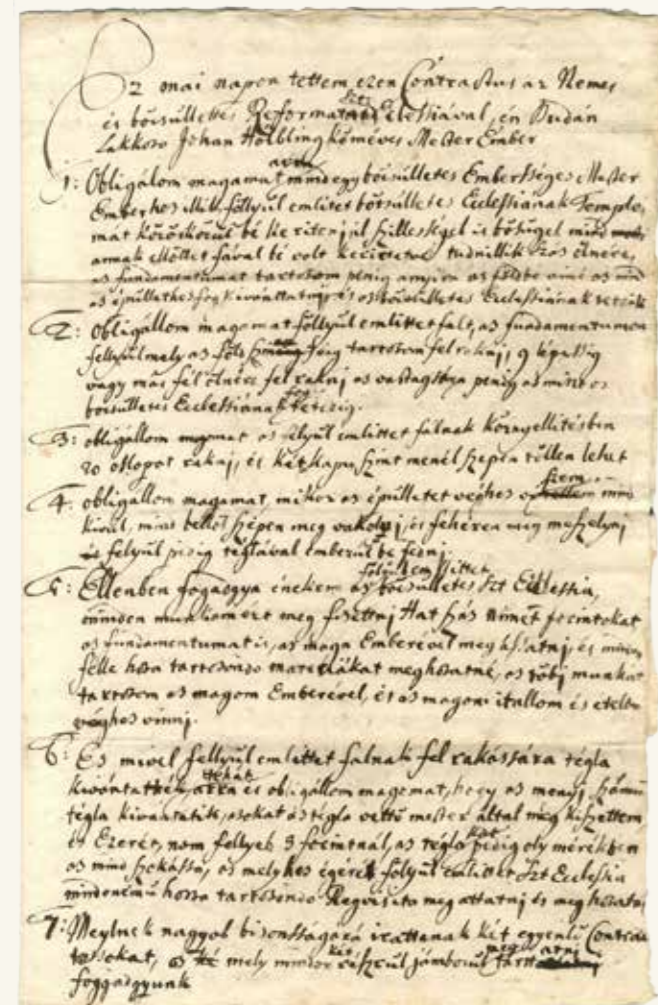 Ez mai napon tettem ezen Contractus az Nemes
és böcsülletes Reformata Szt: Eclesiával, én Budán
Lakkozo Johan Hölbling kőmêves Mester Ember
1: Obligálom magamat mind egy böcsülletes Emberséges Mester
Emberhez illik föllyül emlitet böcsülletes Ecclesiának Templo-
mát körőskörül bé keritenj ül szillességel is bőségel mind
annak előttet fával bé volt keritetve, tudnillik öles ölnére,
as fundamentumat tartozom penig annyira as földbe
as épülethes fog kivántattnj és as böcsülletes Ecclesiának tetzik
2: obligállom magamat föllyül emlittet falt, as fundamentumon
fellyül mely as föld szinéig tartozom fel raknj, 9 lépéssig
vagy más fél ölnire fel raknj as vastagsága penig as mint as
böcsülletes Ecclesiának tetczig.
3: obligállom magamat as félyül emlittet fálnak környellitésben
20 osslopot raknj, és két kapu szint menél szepen töllem lehet
4: obligállom magamat, mikor as épülletet véghes viszem mind
kivül, mind bellöl szépen meg vakolnj, és fehéren meg meszelynj
és felyül pedig téglával emberül bé fednj.
5: Ellenben fogadgya énekem as folyül emlittet böcsülletes Szt Ecclesia,
minden munkámért meg fizettnj Hat Szás német forintokat
as fundamentumat is, as maga Emberével meg ásatnj, és minden
félle hosa tartozando materiákat meghozatnj, as több munkát
tartozom as magom Emberével, és as magom itallom és etelem
véghes vinnj.
6: Es mivel fellyül emlittet falnak fel rakássára tégla
kivántattik, arra tehát és obligállom magomat, hogy as menyj számu
tégla kivántatik, asokat as tégla vettő mester által meg készittem,
és Ezerét, nem fellyeb 3 forintnál, as téglákat pedig oly mértékben
as mind szokássa, as melyhes égérek folyül emlittet Szt Ecclesia
mindenémű hossa tartozando Reqvisita meg attatnj és meg hozatnj
7: Meylnek nagyob bizonsságára irattanak két egyenlű Contrac-
tussokat, mely mindor két részrül jámborul meg tartatnj
foggadgyunk